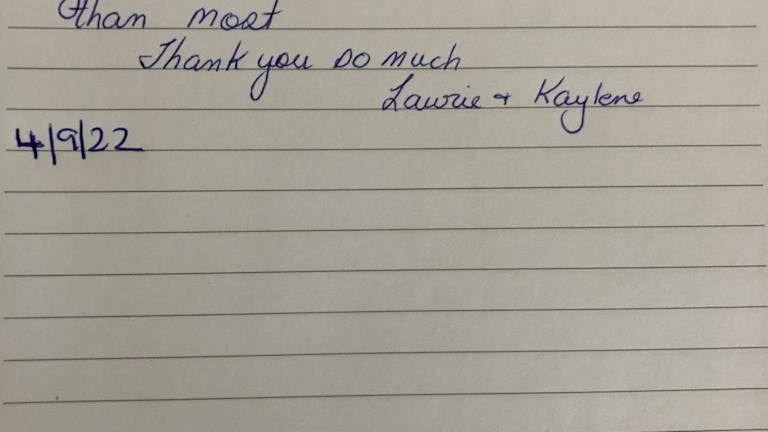 than most
Thank you so much
Lawrie + Kaylene
4/9/22